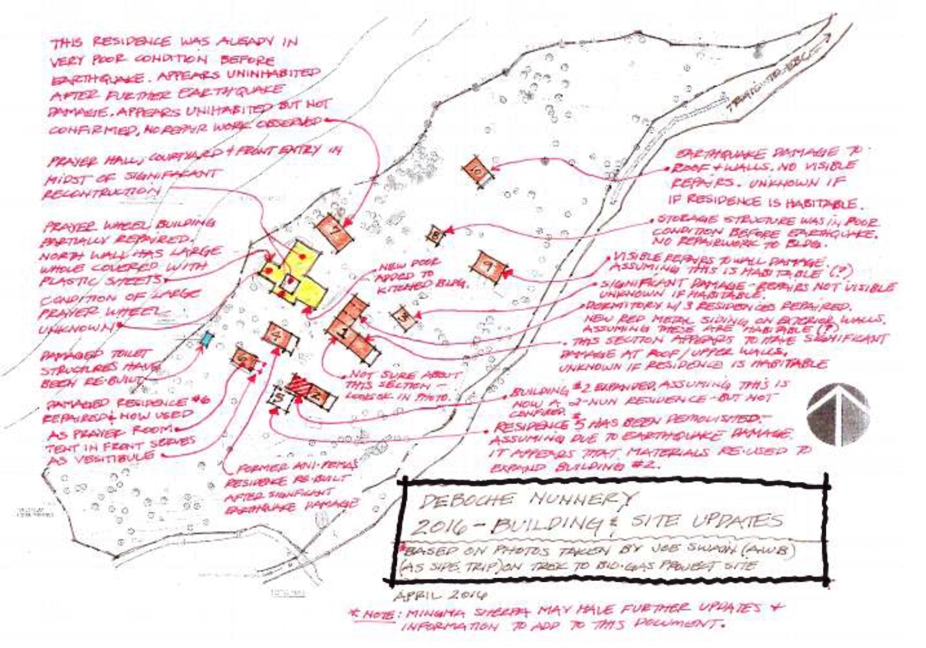 THIS RESIDENCE WAS ALEADY IN
VERY POOR CONDITION BEFORE
EARTHQUAKE. APPEARS UNINHABITED
AFTER FURTHER EARTHQUAKE
DAMAGE. APPEARS UNIHABITED BUT NOT
CONFIRMED. NO REPAIR WORK OBSERVED
PRAYER HALL, COURTYARD + FRONT ENTRY IN
MIDST OF SIGNIFACANT
RECONTRUCTION
PRAYER WHEEL BUILDING
PARTIALLY REPAIRED.
NORTH WALL HAS LARGE
WHOLE COVERED WITH
PLASTIC SHEETS
CONDITION OF LARGE
PRAYER WHEEL
UNKNOWN
DAMAGED TOILET
STRUCTURES HAVE
BEEN RE-BUILT
DAMAGED RESIDENCE #6
REPAIRED & NOW USED
AS PRAYER ROOM
TENT IN FRONT SERVES
AS VESTIBULE
FORMER ANI-PEMAS
RESIDENCE RE-BUILT
AFTER SIGNFICANT
EARTHQUAKE DAMAGE
NEW DOOR
ADDED TO
KITCHEN BLDG.
NOT SURE ABOUT
THIS SECTION -
IN PHOTO.
7
10
8
9
3
1
4
6
5
2
TRAIL TO
EARTHQUAKE DAMAGE TO
ROOF + WALLS. NO VISIBLE
REPAIRS. UNKNOWN IF
IF RESIDENCE IS HABITABLE.
STORAGE STRUCTURE WAS IN POOR
CONDITION BEFORE EARTHQUAKE.
NO REPAIRWORK TO BLDG.
VISIBLE REPAIRS TO WALL DAMAGE.
ASSUMING THIS IS HABITABLE (?)
SIGNIFICANT DAMAGE - REPAIRS NOT VISIBLE
UNKNOWN IF HABITABLE.
DORMITORY W/ 3 RESIDENCES REPAIRED.
NEW RED METAL SIDING ON EXTERIOR WALLS.
ASSUMING THESE ARE HABITABLE (?)
THIS SECTION APPEARS TO HAVE SIGNIFICANT
DAMAGE AT ROOF / UPPER WALLS.
UNKNOWN IF RESIDENCE IS HABITABLE
BUILDING #2 EXPANDED. ASSUMING THIS IS
NOW A 2-NUN RESIDENCE - BUT NOT
CONFIRMED.
RESIDENCE #5 HAS BEEN DEMOLISHED.
ASSUMING DUE TO EARTHQUAKE DAMAGE.
IT APPEARS THAT MATERIALS RE-USED TO
EXPAND BUILDING #2.
DEBOCHE NUNNERY
2016 - BUILDING & SITE UPDATES
*BASED ON PHOTOS TAKEN BY JOE SWAIN (AWB)
(AS SIDE TRIP) ON TREK TO BIO-GAS PROJECT SITE
APRIL 2016
* NOTE: MINGMA SHERPA MAY HAVE FURTHER UPDATES &
INFORMATION TO ADD TO THIS DOCUMENT.